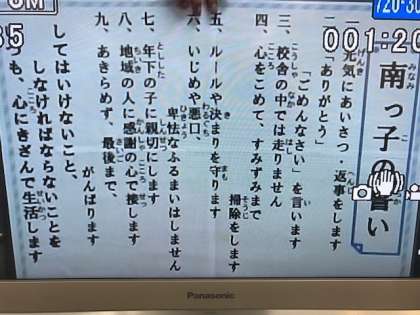 南っ子の誓い
一 元気にあいさつ・返事をします
二 「ありがとう」
「ごめんなさい」を言います
三、校舎の中では走りません
四、心をこめて、すみずみまで
掃除をします
五、ルールや決まりを守ります
六、いじめや悪口、
卑怯なふるまいはしません
七、年下の子に親切にします
八、地域の人に感謝の心で接します
九、あきらめず、最後まで、
がんばります
してはいけないこと、
しなければならないことを
も、心にきざんで生活します
Panasonic